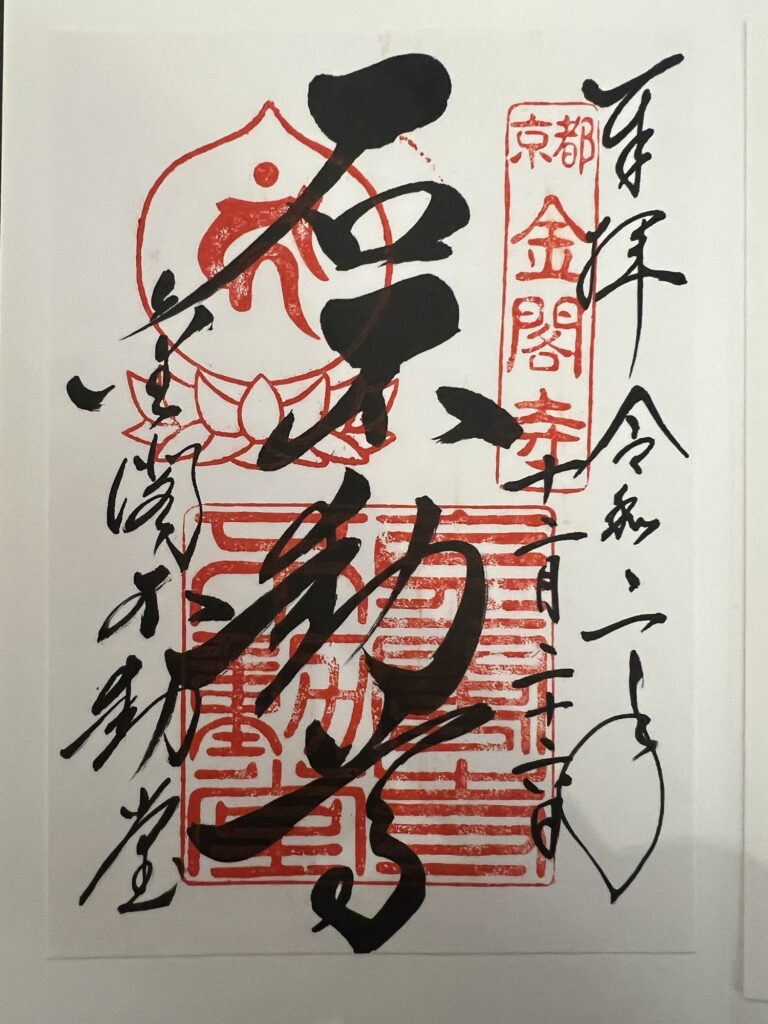 奉拝 令和年
十二月二十日
京都
金閣寺
石不動尊
金閣不動堂